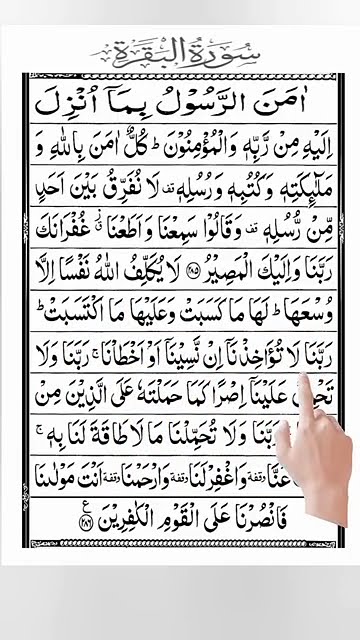 سورة البقرة
اٰمَنَ الرَّسُوۡلُ بِمَاۤ اُنۡزِلَ
اِلَيۡهِ مِنۡ رَّبِّهٖ وَالۡمُؤۡمِنُوۡنَ ؕ كُلٌّ اٰمَنَ بِاللّٰهِ وَ
مَلٰٓئِكَتِهٖ وَكُتُبِهٖ وَرُسُلِهٖ قف لَا نُفَرِّقُ بَيۡنَ اَحَدٍ
مِّنۡ رُّسُلِهٖ قف وَقَالُوۡا سَمِعۡنَا وَاَطَعۡنَا غُفۡرَانَكَ
رَبَّنَا وَاِلَيۡكَ الۡمَصِيۡرُ ﴿۲۸۵﴾ لَا يُكَلِّفُ اللّٰهُ نَفۡسًا اِلَّا
وُسۡعَهَا ؕ لَهَا مَا كَسَبَتۡ وَعَلَيۡهَا مَا اكۡتَسَبَتۡ ؕ
رَبَّنَا لَا تُؤَاخِذۡنَاۤ اِنۡ نَّسِيۡنَاۤ اَوۡ اَخۡطَاۡنَا ۚ رَبَّنَا وَلَا
عَلَيۡنَاۤ اِصۡرًا كَمَا حَمَلۡتَهٗ عَلَى الَّذِيۡنَ مِنۡ
رَبَّنَا وَلَا تُحَمِّلۡنَا مَا لَا طَاقَةَ لَنَا بِهٖ ۚ
عَنَّا وقفة وَاغۡفِرۡ لَنَا وقفة وَارۡحَمۡنَا وقفة اَنۡتَ مَوۡلٰٮنَا
فَانۡصُرۡنَا عَلَى الۡقَوۡمِ الۡكٰفِرِيۡنَ ﴿۲۸۶﴾ ع